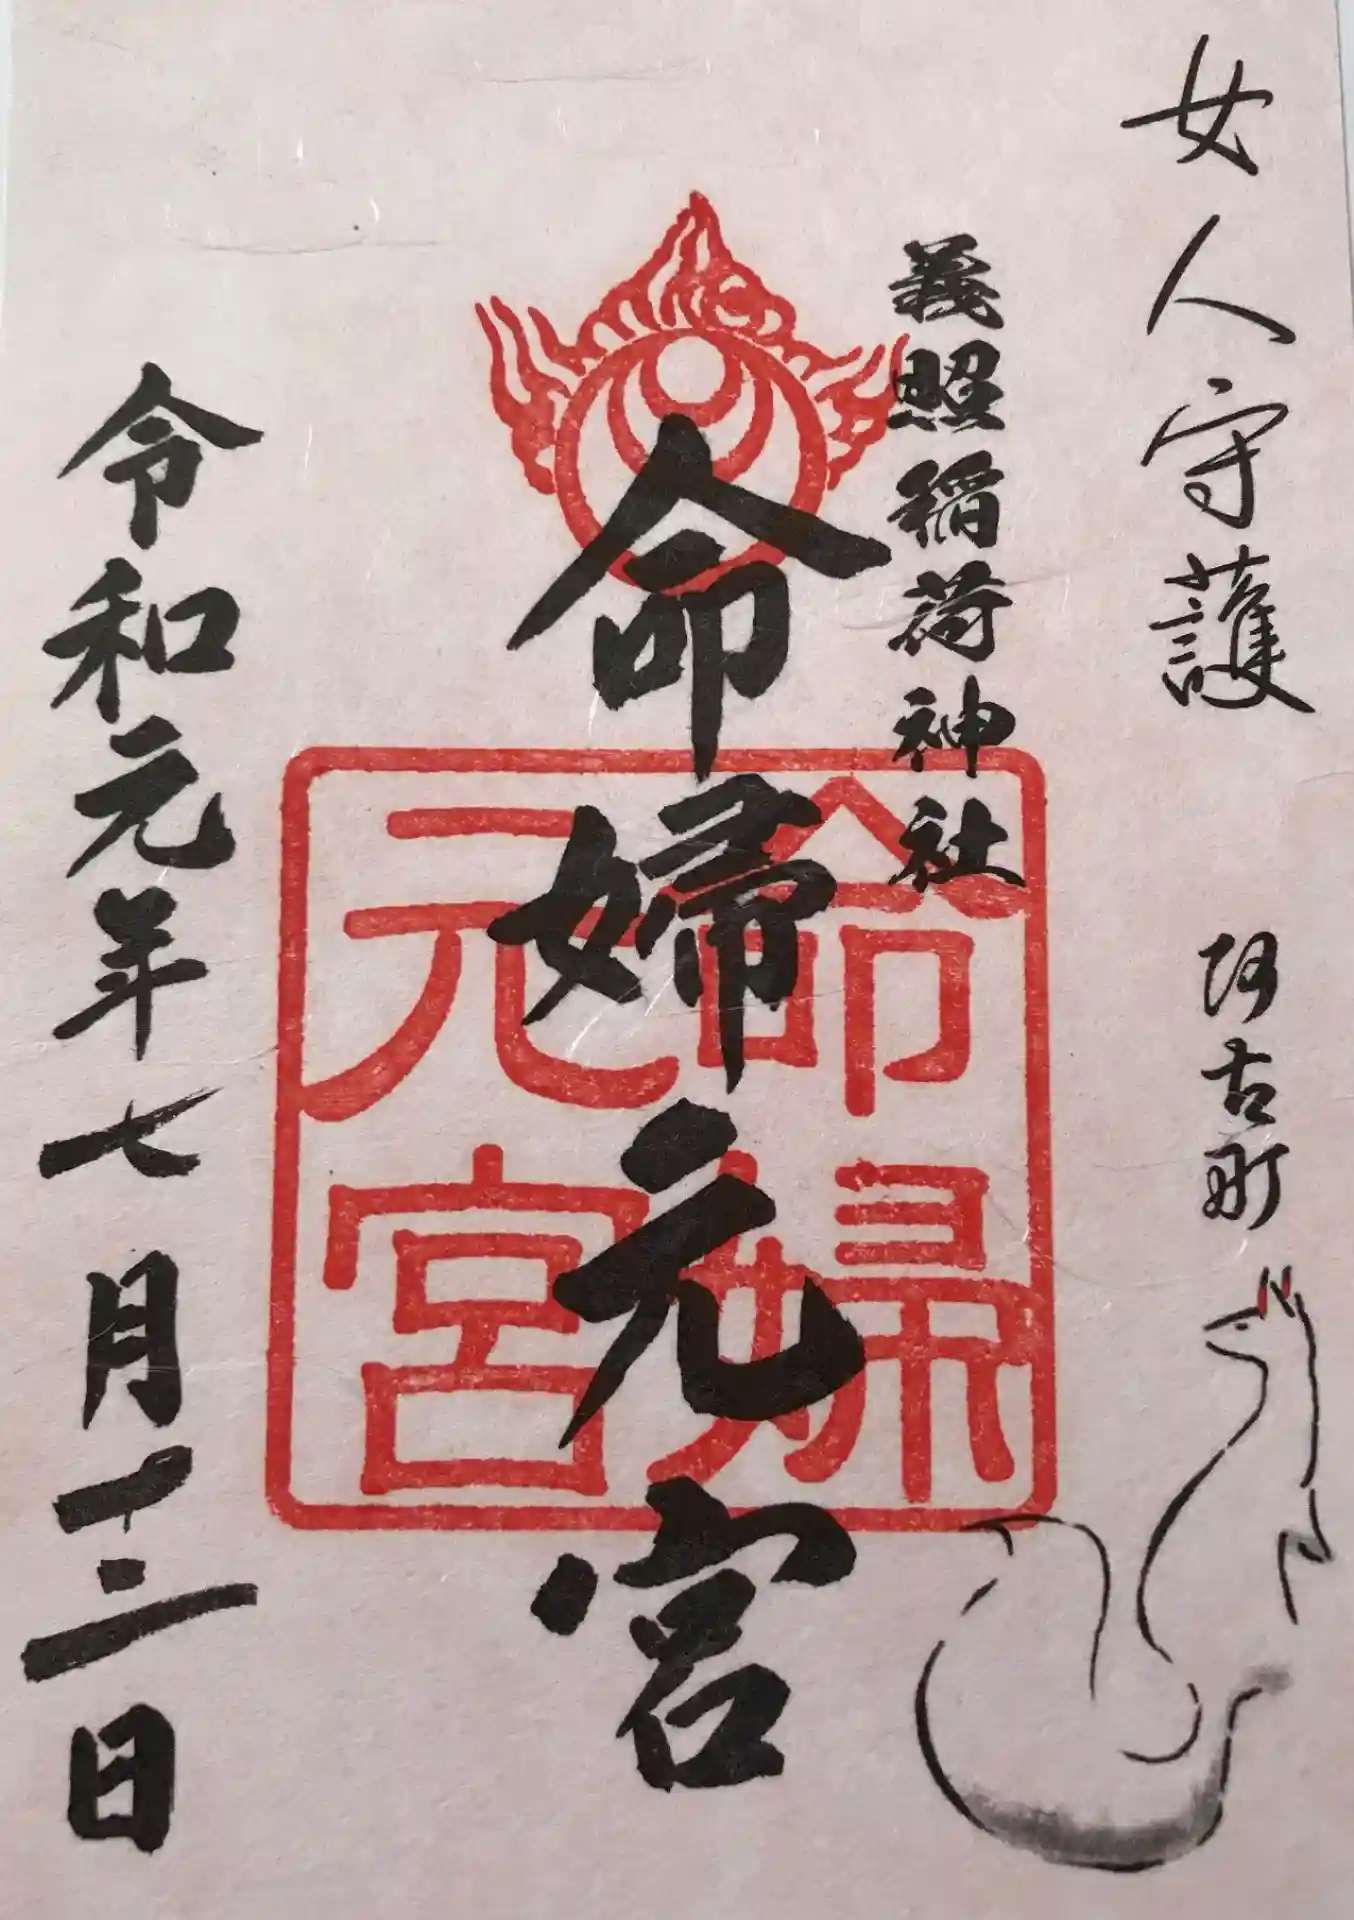 女人守護
阿古町
義照稲荷神社
命婦元宮
命婦元宮
令和元年七月十三日